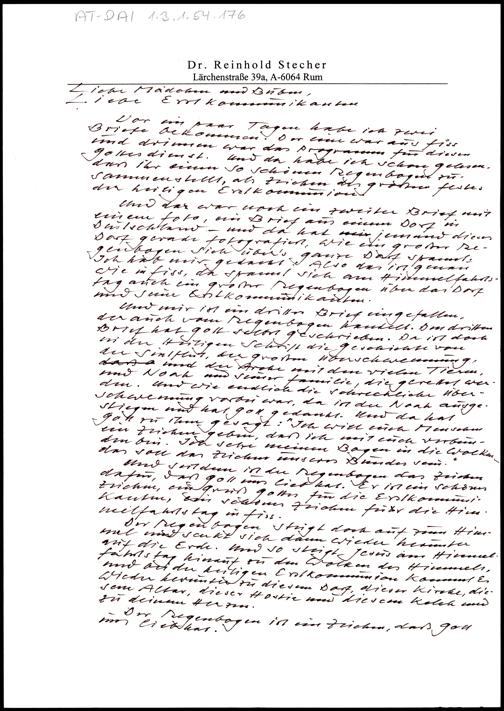 AT-DAI 1.3.1.54.176
Dr. Reinhold Stecher
Lärchenstraße 39a, A-6064 Rum
Liebe Mädchen und Buben,
Liebe Erstkommunikanten
Vor ein paar Tagen habe ich zwei
Briefe bekommen. Der eine war aus Fiss
und drinnen war das Programm für diesen
Gottesdienst. Und da habe ich schon gelesen,
dass ihr einen so schönen Regenbogen zu-
sammenstellt, als Zeichen des großen Festes
der heiligen Erstkommunion.
Und da war noch ein zweiter Brief mit
einem Foto, ein Brief aus einem Dorf in
Deutschland – und da hat jemand dieses
Dorf gerade fotografiert, wie ein großer Re-
genbogen sich über's ganze Dorf spannt.
Ich hab mir gedacht: Also das ist genau
wie in Fiss, da spannt sich am Himmelfahrts-
tag auch ein großer Regenbogen über das Dorf
und seine Erstkommunikanten.
Und mir ist ein dritter Brief eingefallen,
der auch vom Regenbogen handelt. Den dritten
Brief hat Gott selbst geschrieben. Da ist doch
in der Heiligen Schrift die Geschichte von
der Sintflut, der großen Überschwemmung
und der Arche mit den vielen Tieren,
und Noah und seiner Familie, die gerettet wer-
den. Und wie endlich die schreckliche Über-
schwemmung vorbei war, da ist der Noah ausge-
stiegen und hat Gott gedankt. Und da hat
Gott zu ihm gesagt: "Ich will euch Menschen
ein Zeichen geben, dass ich mit euch verbun-
den bin. Ich setze meinen Bogen in die Wolken,
das soll das Zeichen unseres Bundes sein."
Und seitdem ist der Regenbogen das Zeichen
dafür, dass Gott uns lieb hat. Er ist ein schönes
Zeichen, ein Gruß Gottes für die Erstkommuni-
kanten, ein schönes Zeichen für die Him-
melfahrtstag in Fiss.
Der Regenbogen steigt doch auf zum Him-
mel und senkt sich dann wieder herunter
auf die Erde. Und so steigt Jesus am Himmel-
fahrtstag hinauf zu den Wolken des Himmels,
und bei der heiligen Erstkommunion kommt Er
wieder herunter zu diesem Dorf, dieser Kirche, die-
sem Altar, dieser Hostie und diesem Kelch und
zu deinem Herzen.
Der Regenbogen ist ein Zeichen, dass Gott
uns lieb hat.